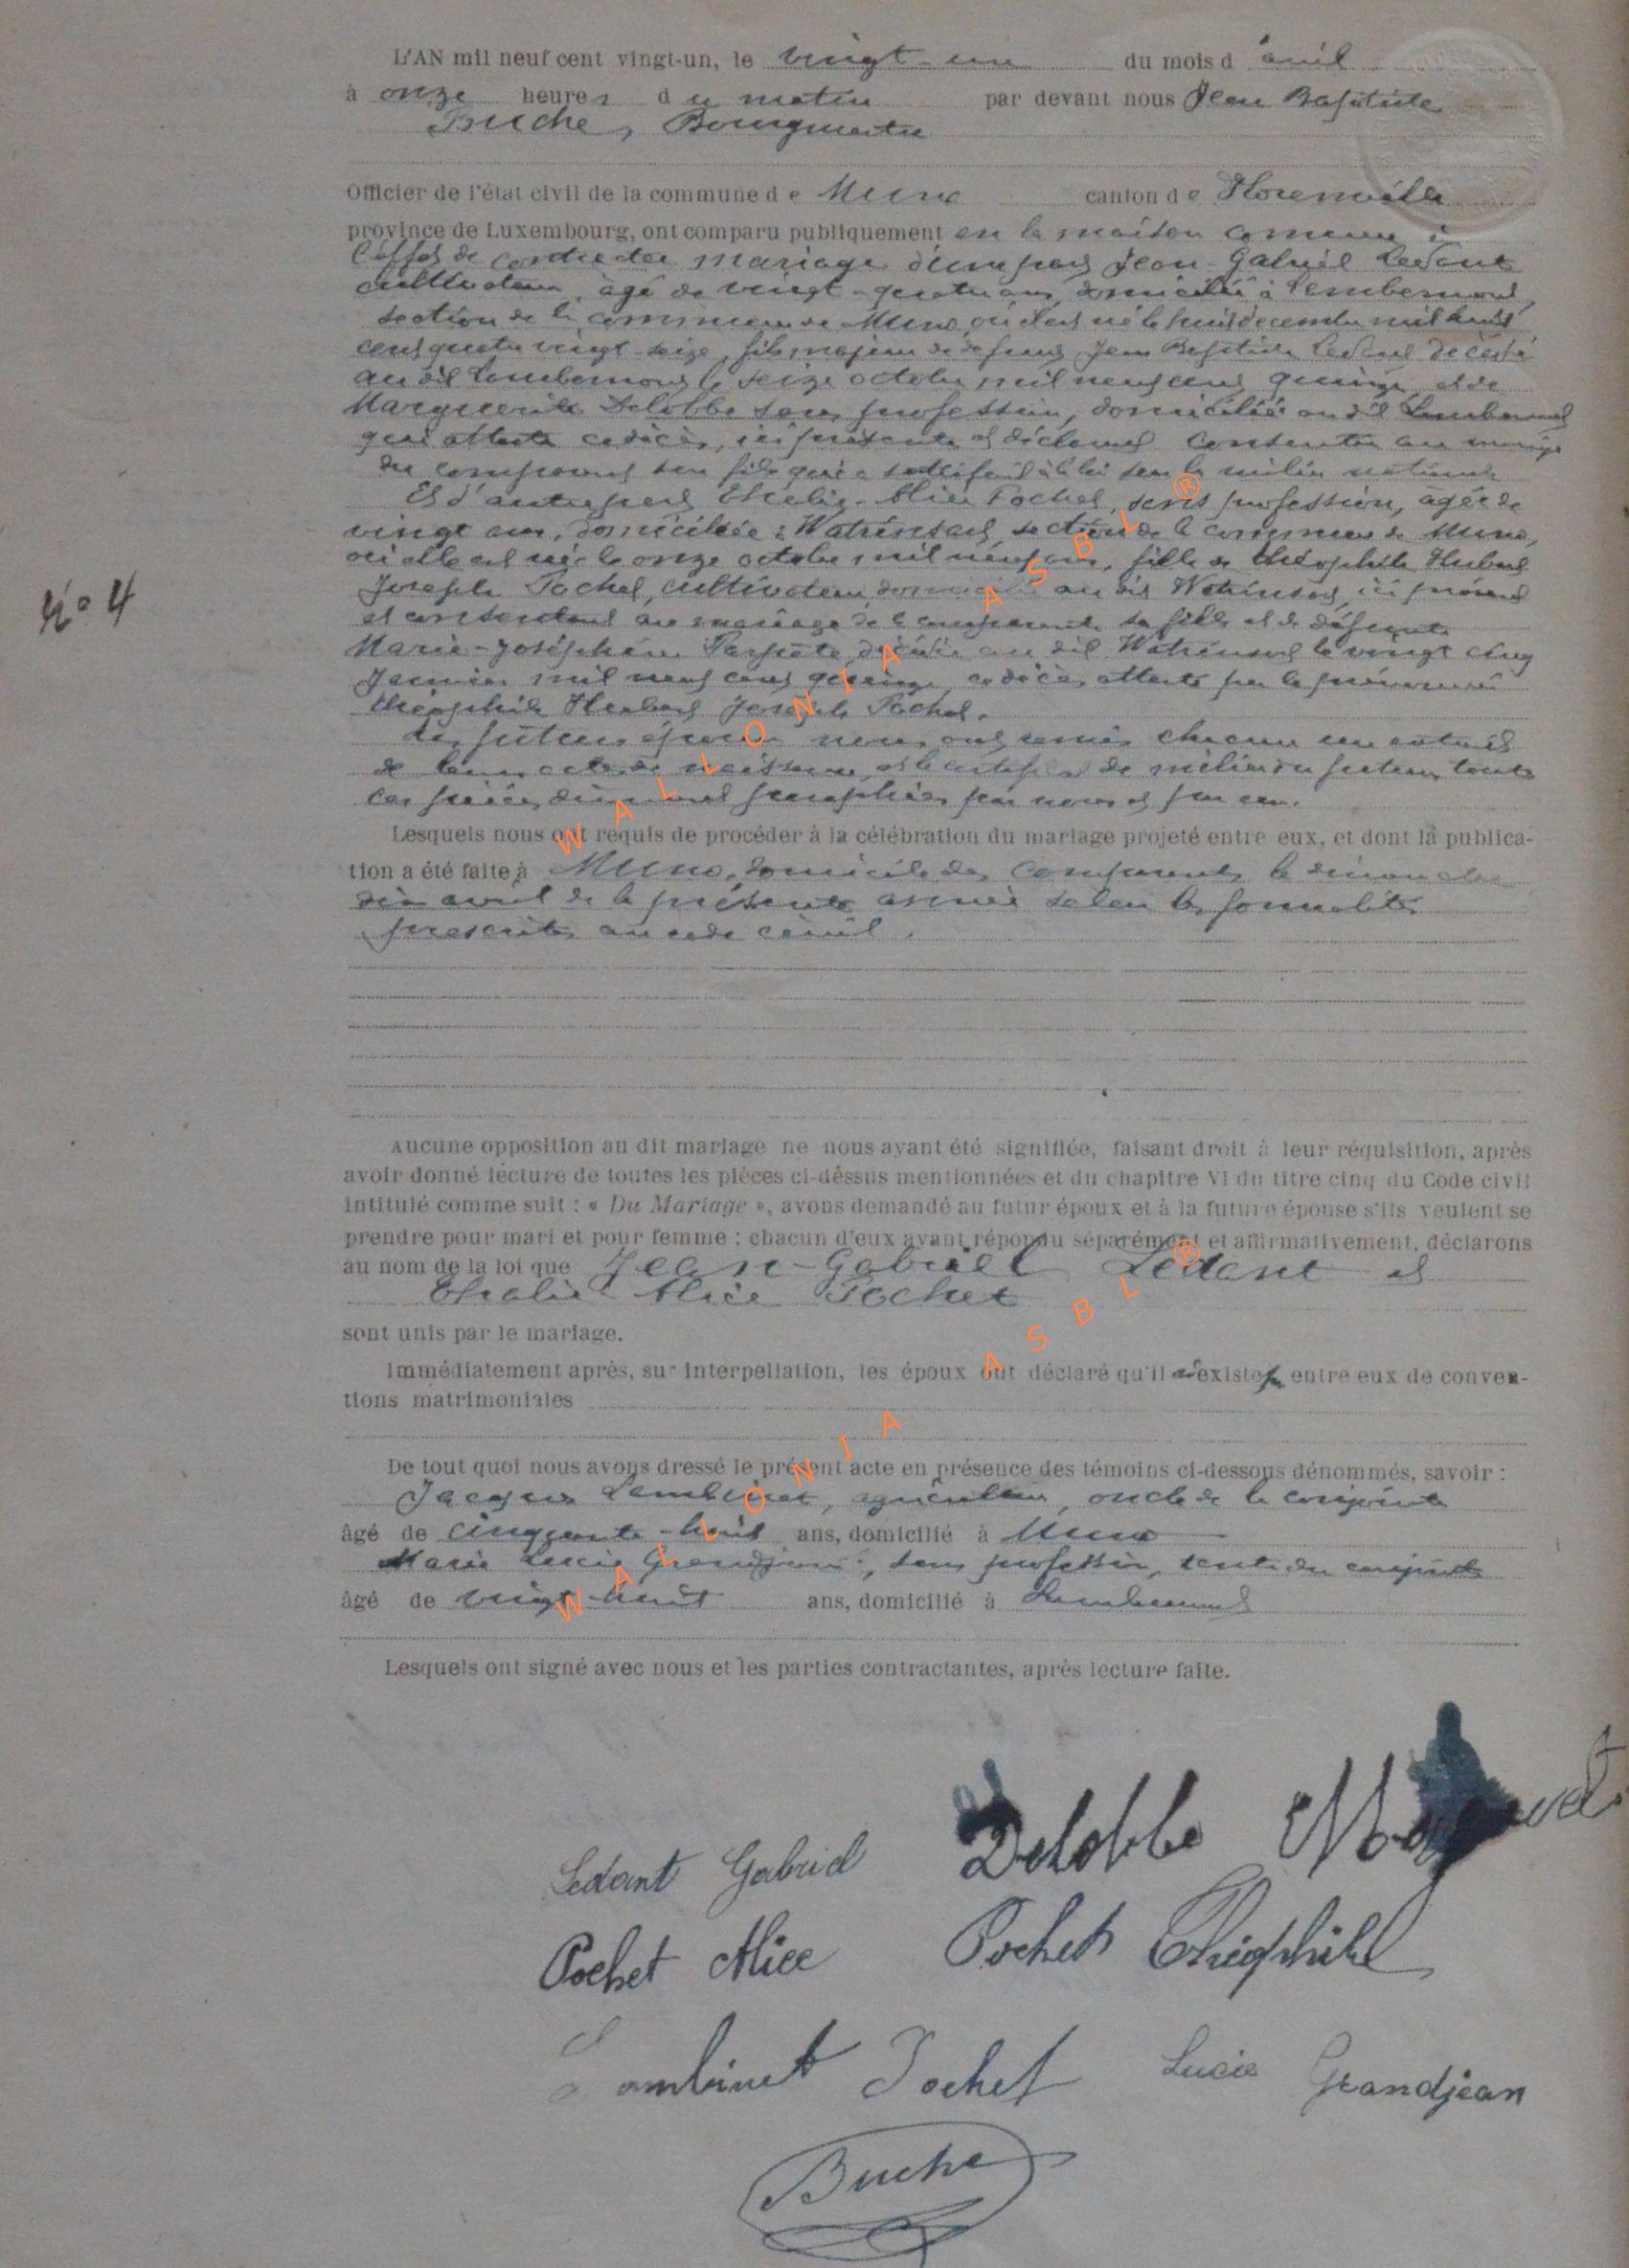 L'AN mil neuf cent vingt-un, le vingt-un du mois d'avril
à onze heures du matin par devant nous Jean Baptiste
Buche, Bourgmestre
Officier de l'état civil de la commune de Muno canton de Florenville
province de Luxembourg, ont comparu publiquement en la maison commune à
l'effet de contracter mariage d'une part Jean-Gabriel Ledent
cultivateur, âgé de vingt-quatre ans, domicilié à Lambermont,
section de la commune de Muno, où il est né le huit décembre mil huit
cent quatre vingt-seize, fils majeur de défunt Jean Baptiste Ledent décédé
au dit Lambermont le seize octobre mil neuf cent quinze et de
Marguerite Delobbe sans profession, domiciliée au dit Lambermont
qui atteste ce décès, ici présente et déclarant consentir au mariage
du comparant son fils qui a satisfait à la loi sur la milice nationale
Et d'autre part Thalie-Alice Pochet, sans profession, âgée de
vingt ans, domiciliée à Watrinsart, section de la commune de Muno,
où elle est née le onze octobre mil neuf cent, fille de Théophile Hubert
Joseph Pochet, cultivateur, domicilié au dit Watrinsart, ici présent
et consentant au mariage de la comparante sa fille et de défunte
Marie-Joséphine décédée au dit Watrinsart le vingt cinq
Janvier mil neuf cent quinze, ce décès attesté par le prénommé
Théophile Hubert Joseph Pochet.
Les futurs époux nous ont remis chacun un extrait
de leur acte de naissance, et le certificat de milice du futur, toutes
ces pièces dûment paraphées par nous et par eux.
Lesquels nous ont requis de procéder à la célébration du mariage projeté entre eux, et dont la publica-
tion a été faite à Muno, domicile des comparants le dimanche
dix avril de la présente année selon les formalités
prescrites au code civil.
N° 4
Aucune opposition au dit mariage ne nous ayant été signifiée, faisant droit à leur réquisition, après
avoir donné lecture de toutes les pièces ci-dessus mentionnées et du chapitre VI du titre cinq du Code civil
intitulé comme suit : « Du Mariage », avons demandé au futur époux et à la future épouse s'ils veulent se
prendre pour mari et pour femme ; chacun d'eux ayant répondu séparément et affirmativement, déclarons
au nom de la loi que Jean-Gabriel Ledent et
Thalie Alice Pochet
sont unis par le mariage.
Immédiatement après, sur interpellation, les époux ont déclaré qu'il n'existe pas entre eux de conven-
tions matrimoniales
De tout quoi nous avons dressé le présent acte en présence des témoins ci-dessous dénommés, savoir :
Jacques Lambinet, agriculteur, oncle de la conjointe
âgé de cinquante-huit ans, domicilié à Muno
Marie Lucie Grandjean, sans profession, tante du conjoint
âgé de vingt-huit ans, domicilié à Lambermont
Lesquels ont signé avec nous et les parties contractantes, après lecture faite.
Ledent Gabriel Delobbe
Pochet Alice Pochet Théophile
Lambinet Pochet Lucie Grandjean
Buche
WALLONIA ASBL ®
WALLONIA ASBL ®